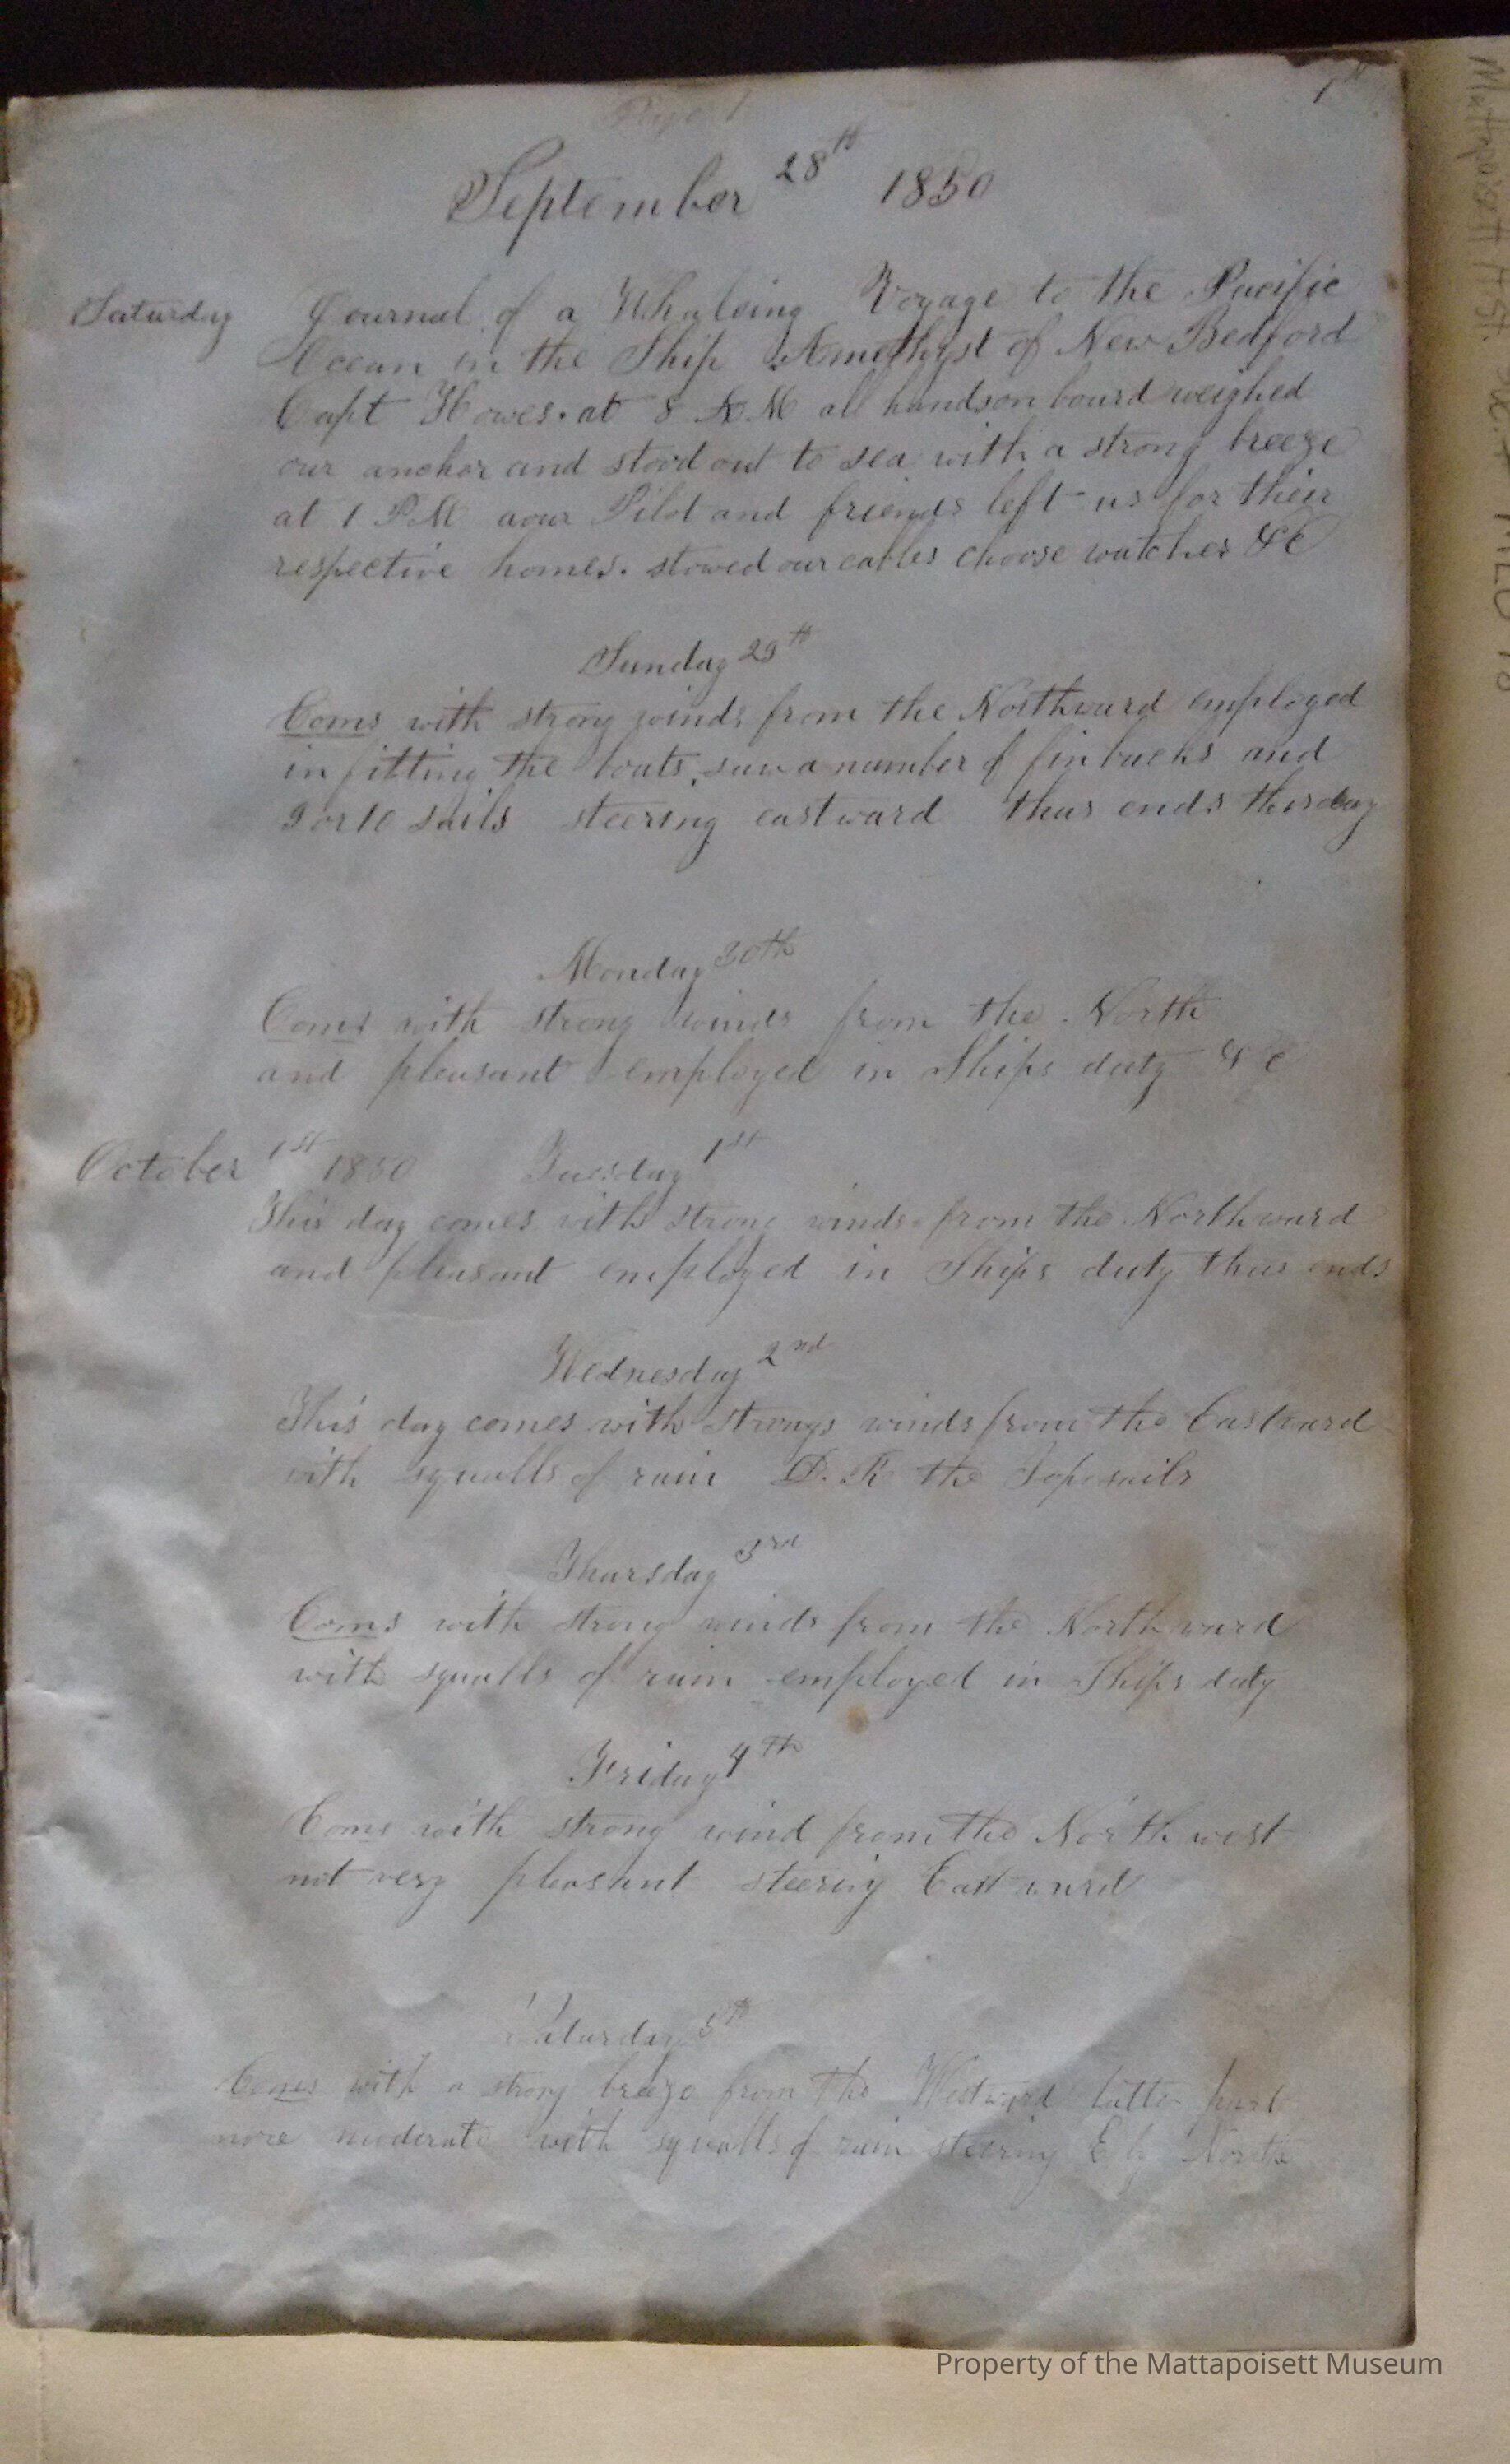 1st
Page 1
September 28th 1850
Saturday Journal of a Whaleing Voyage to the Pacific
Ocean in the Ship Amethyst of New Bedford
Capt Howes. at 8 A.M all hands on board weighed
our anchor and stood out to sea with a strong breeze
at 1 PM aour Pilot and friends left us for their
respective homes. stowed our cables choose watches &c
Sunday 29th
Coms with strong winds from the Northward employed
in fitting the boats, saw a number of finbacks and
9 or 10 sails steering eastward thus ends this day
Monday 30th
Coms with strong winds from the North
and pleasant employed in Ships duty &c
October 1st 1850 Tuesday 1st
This day comes with strong winds from the Northward
and pleasant employed in Ships duty thus ends
Wednesday 2nd
This day comes with strongs winds from the Eastward
with squalls of rain D. R the Topsails
Thursday 3rd
Coms with strong winds from the Northward
with squalls of rain employed in Ships duty
Friday 4th
Coms with strong wind from the North west
not very pleasant steering Eastward
Saturday 5th
Comes with a strong breeze from the Westward latter part
more moderate with squalls of rain steering E by North
Property of the Mattapoisett Museum